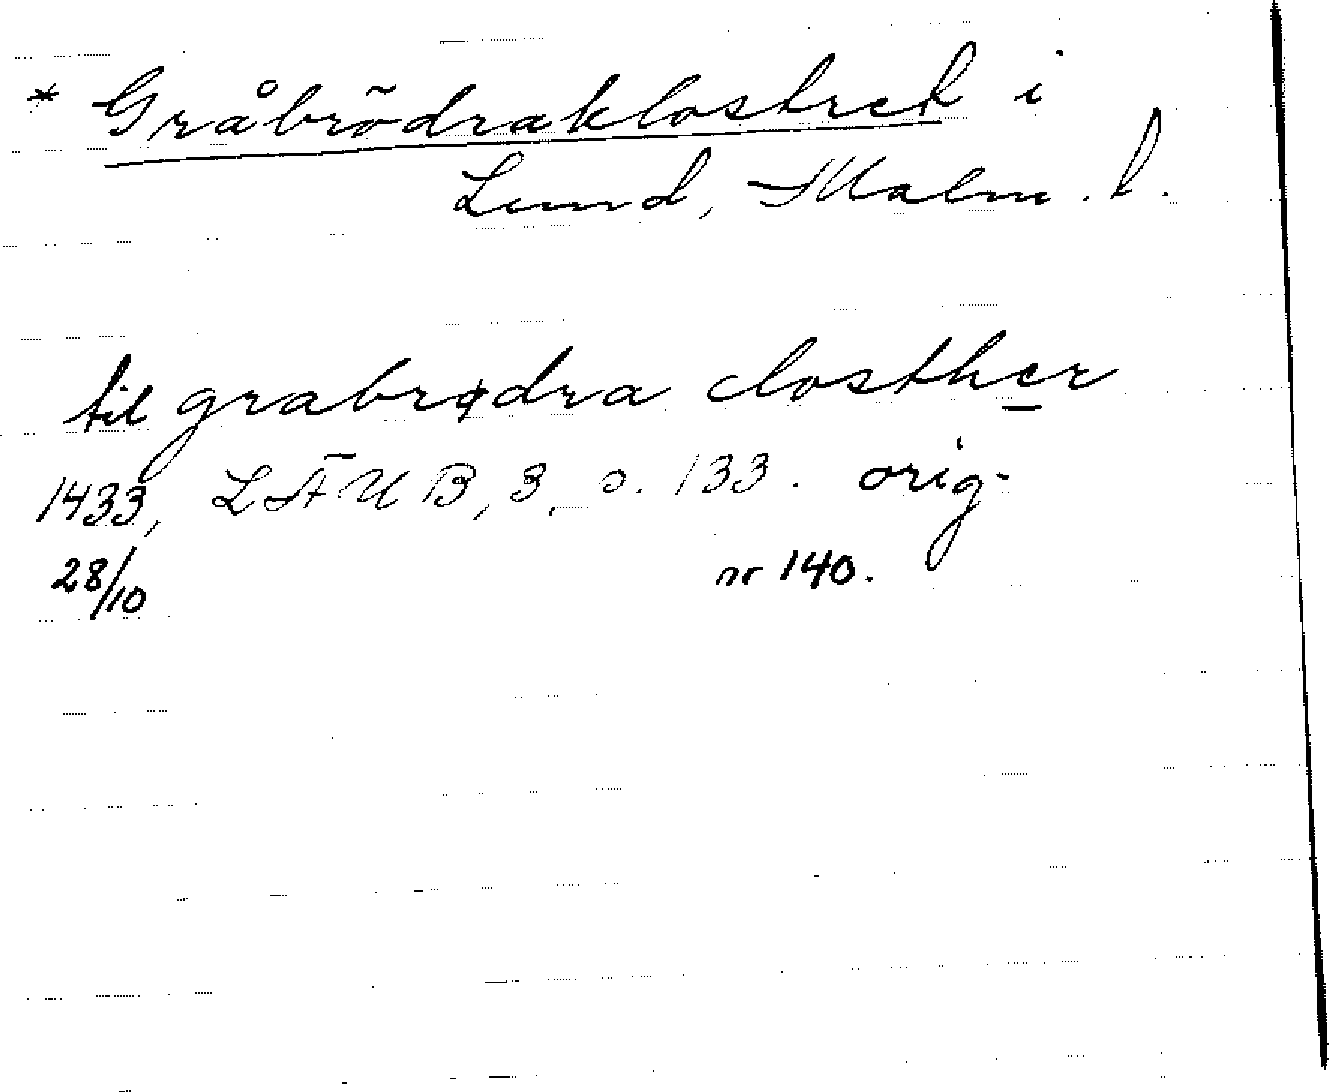 * Gråbrödraklostret i
Lund, Malm. l.
til grabrødra closther
1433, LÄUB, 3, s. 133. orig.
28/10 nr 140.